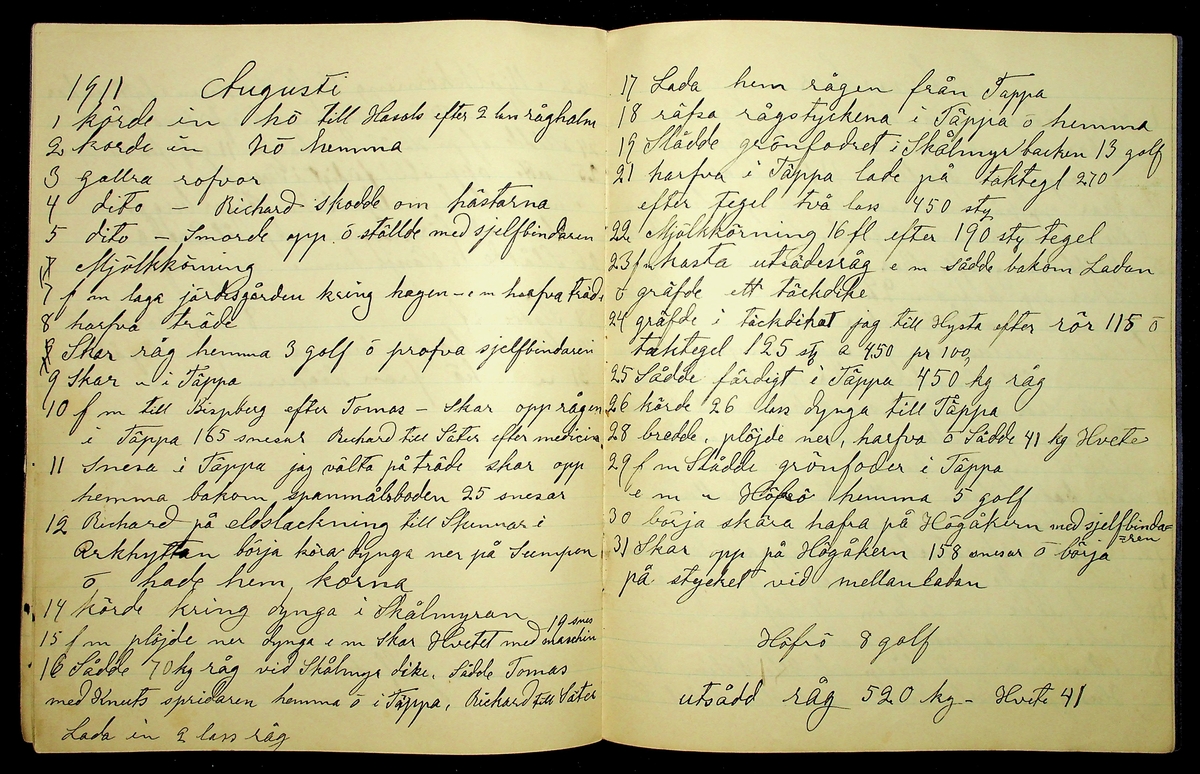 1911 Augusti
1 körde in hö till Hasols efter 2 lass råghalm
2 körde in hö hemma
3 gallra rofvor
4 dito - Richard skodde om hästarna
5 dito - Smorde opp ö ställde med sjelfbindaren
Mjölkkörning
7 f m laga järdesgården kring hagen - e m harfva träd
8 harfva träde
Skar råg hemma 3 golf ö profva sjelfbindaren
9 Skar " i Täppa
10 f m till Bispberg efter Tomas - Skar opp rågen
i Täppa 165 snesar Richard till Säter efter medicin
11 Snesa i Täppa jag välta på träde skar opp
hemma bakom spanmålsboden 25 snesar
12 Richard på eldslackning till Skinnar i
Arkhyttan börja köra dynga ner på Sumpen
ö hade hem korna
14 körde kring dynga i Skålmyran
19 snes
15 f m plöjde ner dynga e m Skar Hvetet med maschin
16 Sådde 70 kg råg vid Skålmyr dike. Sådde Tomas
med Knuts spridaren hemma ö i Täppa, Richard till Säter
Lada in 2 lass råg
17 Lada hem rågen från Täppa
18 räfsa rågstyckena i Täppa ö hemma
19 Slådde grönfodret i Skålmyrbacken 13 golf
21 harfva i Täppa lade på taktegl 270
efter tegel två lass 450 sty
22 Mjölkkörning 16 fl efter 190 sty tegel
23 f m kasta utsädesråg e m Sådde bakom Ladan
ö gräfde ett täckdike
24 gräfde i täckdiket jag till Hysta efter rör 115 ö
taktegel 125 sty a 4,50 pr 100,
25 Sådde färdigt i Täppa 450 kg råg
26 körde 26 lass dynga till Täppa
28 bredde, plöjde ner, harfva ö Sådde 41 kg Hvete
29 f m Slådde grönfoder i Täppa
e m " Höfrö hemma 5 golf
30 börja skära hafra på Högåkern med sjelfbinda=
=ren
31 Skar opp på Högåkern 158 snesar ö börja
på stycket vid mellanladan
Höfrö 8 golf
utsådd råg 520 kg - Hvete 41